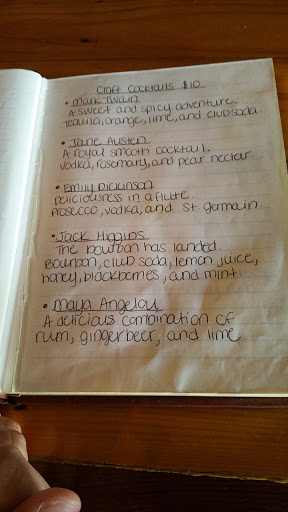 Craft Cocktails $10
• Mark Twain
A sweet and spicy adventure.
Tequila, orange, lime, and club soda
• Jane Austen
A royal smooth cocktail.
Vodka, rosemary, and pear nectar.
• Emily Dickinson
Deliciousness in a flute.
Prosecco, vodka, and St. germain.
• Jack Higgins
The bourbon has landed.
Bourbon, club soda, lemon juice,
honey, blackberries, and mint.
• Maya Angelou
A delicious combination of
rum, gingerbeer, and lime.